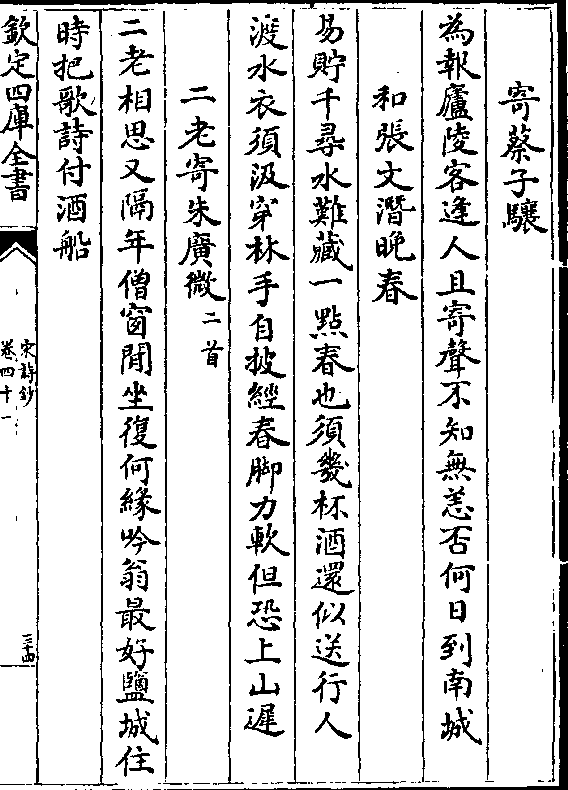 寄蔡子驤
為報廬陵客逢人且寄聲不知無恙否何日到南城
和張文潛晚春
易貯千尋水難藏一點春也須幾杯酒還似送行人
渡水衣須汲穿林手自披經春脚力軟但恐上山遲
二老寄朱廣微二首
二老相思又隔年僧窗閒坐復何緣吟翁最好鹽城住
時把歌詩付酒船
欽定四庫全書
宋詩鈔
卷四十一
三十四